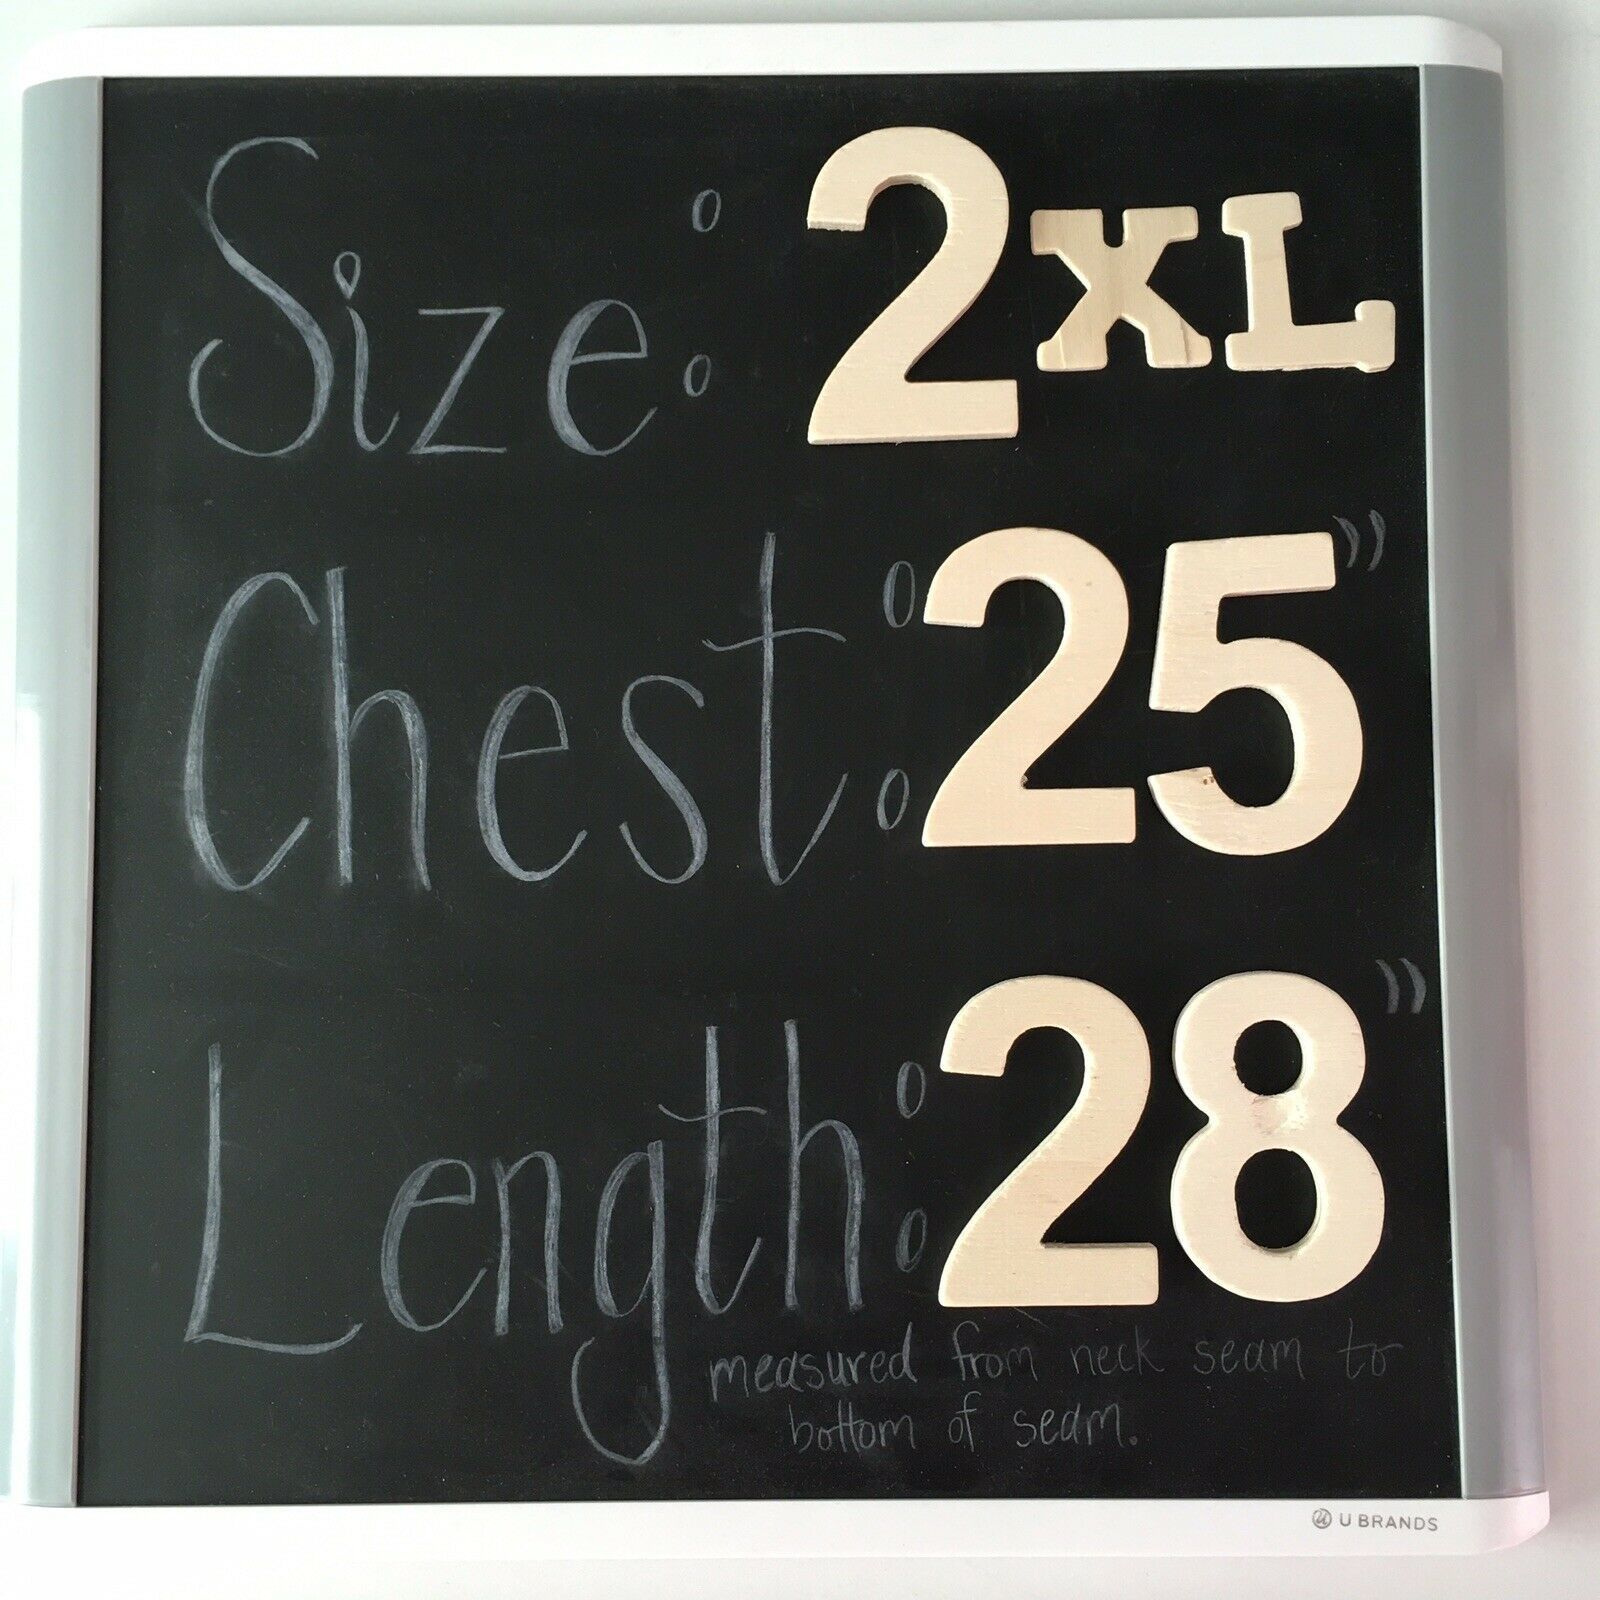 Size: 2XL
Chest: 25"
Length: 28"
measured from neck seam to
bottom of seam.
U BRANDS